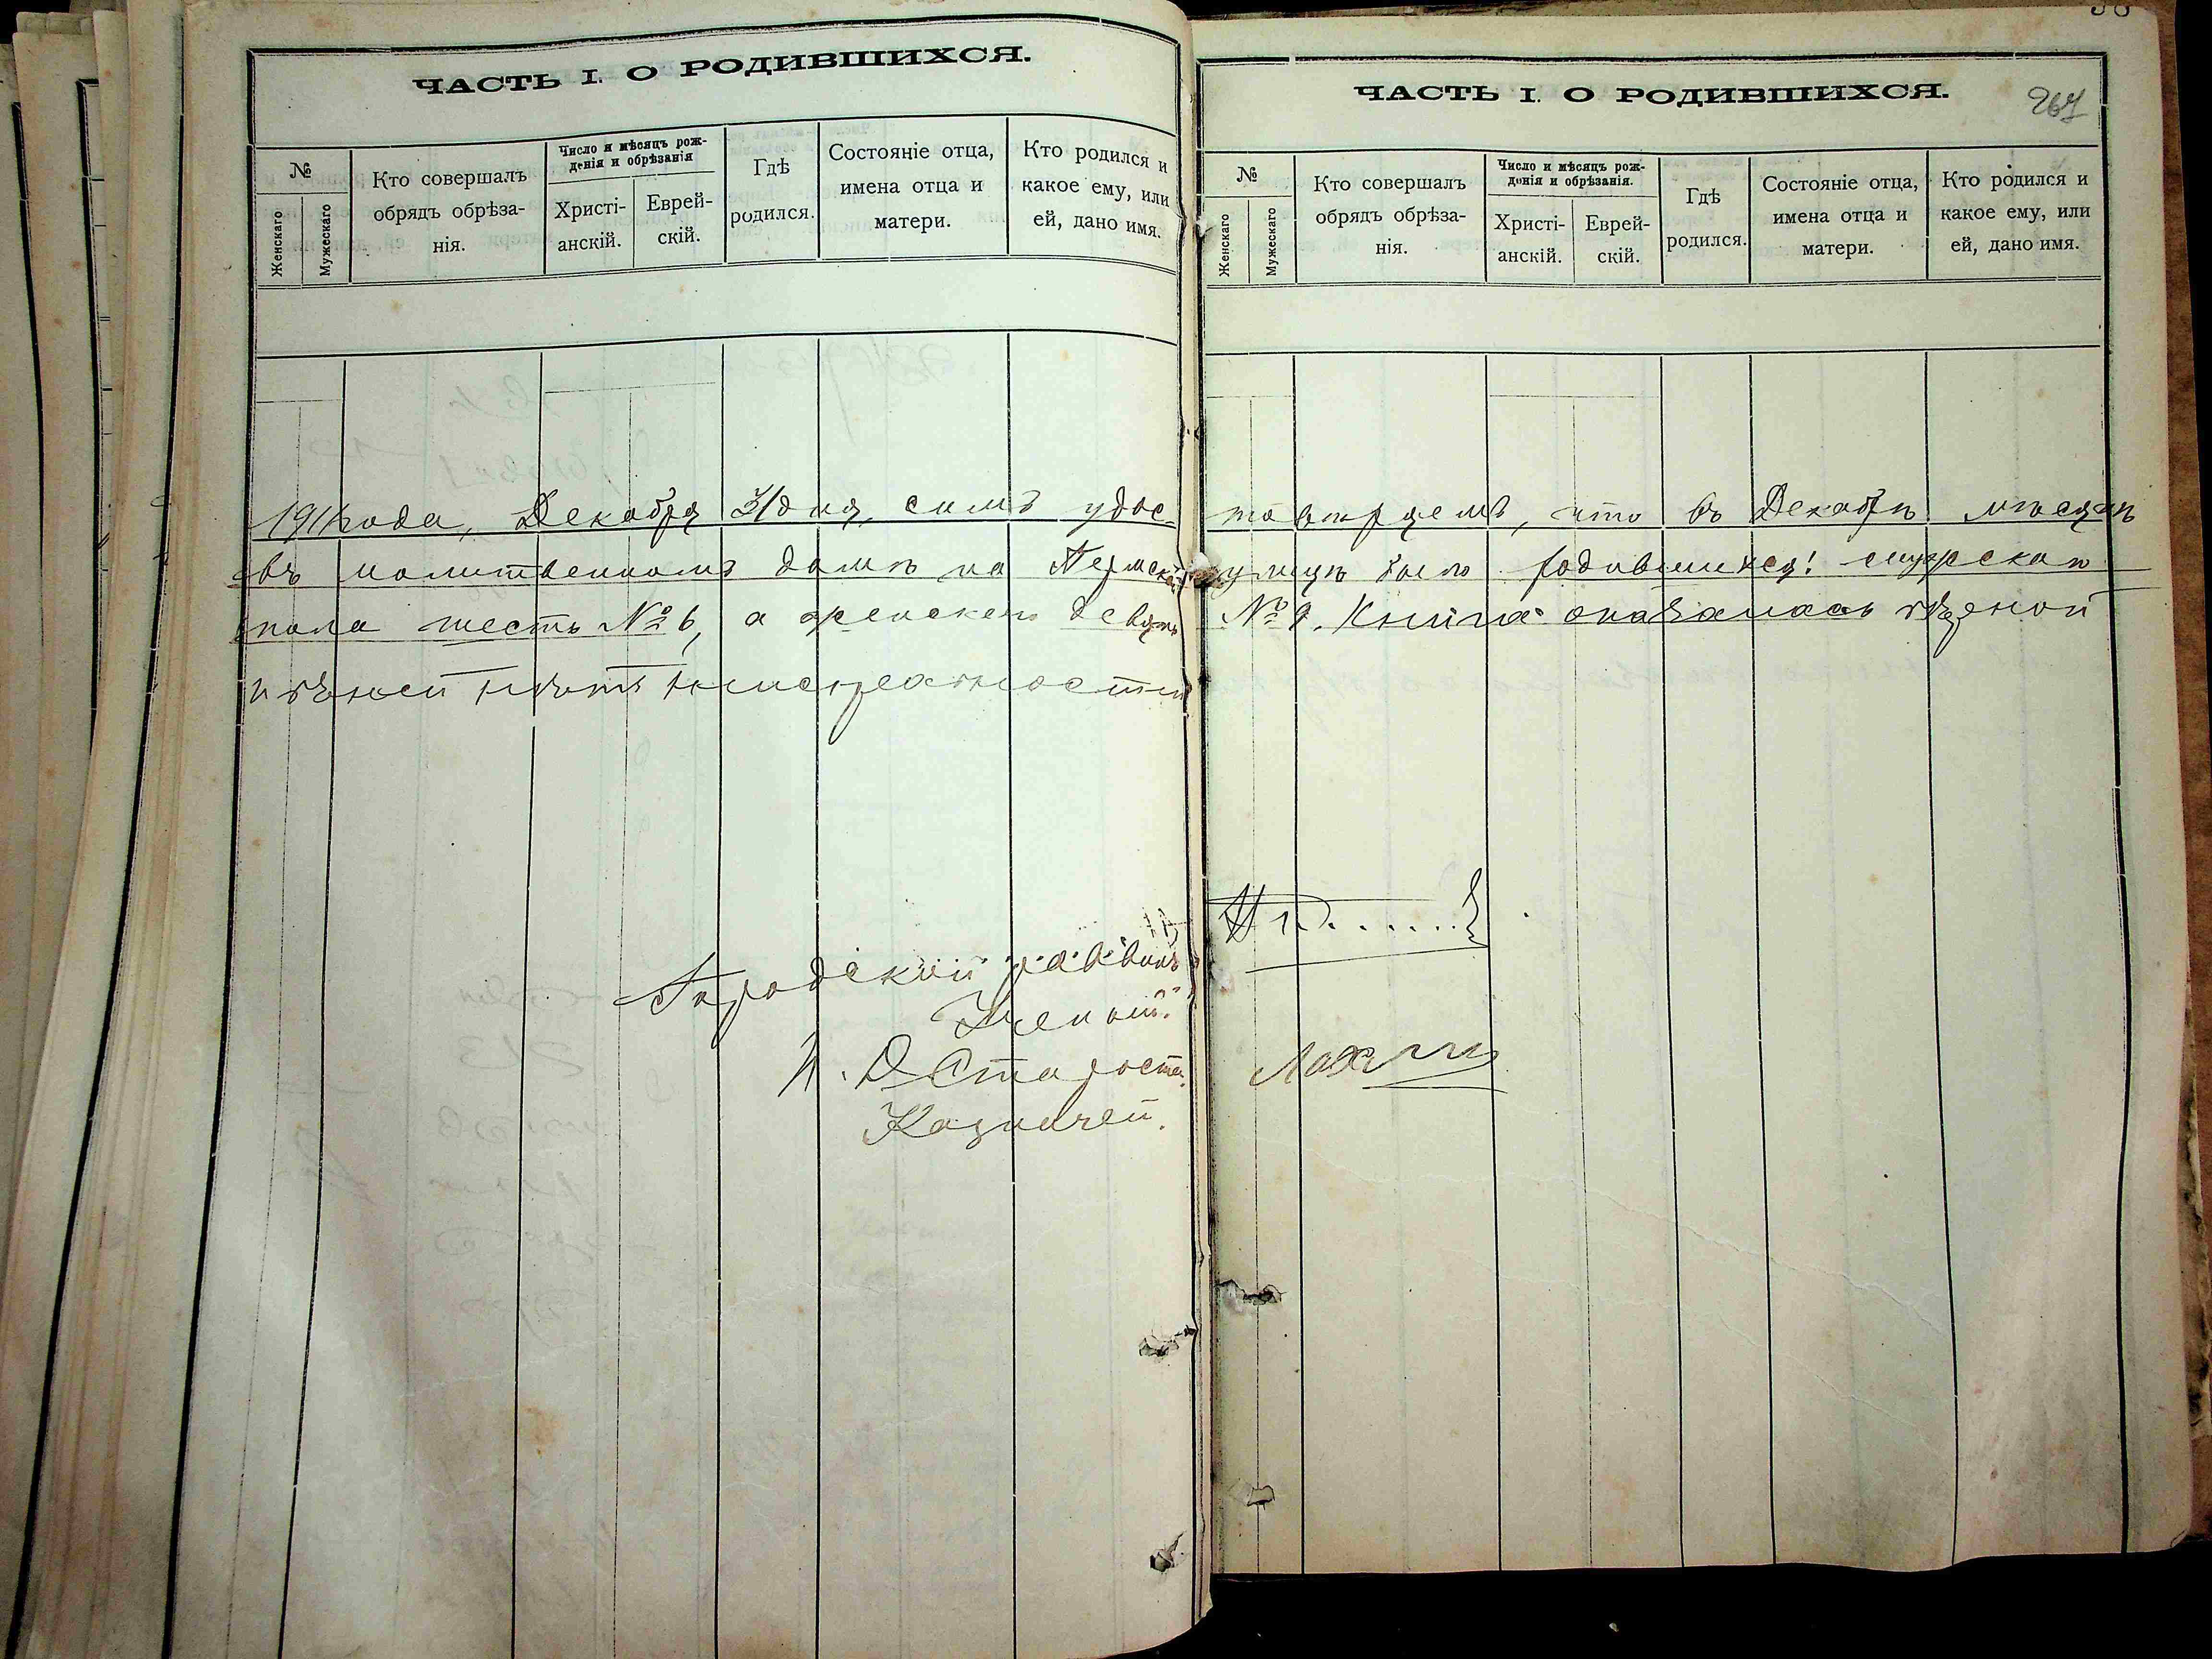 ЧАСТЬ I. О РОДИВШИХСЯ.
№
Женскаго
Мужескаго
Кто совершалъ
обрядъ обрѣза-
нія.
Число и мѣсяцъ рож-
денія и обрѣзанія
Христі-
анскій.
Еврей-
скій.
Гдѣ
родился.
Состояніе отца,
имена отца и
матери.
Кто родился и
какое ему, или
ей, дано имя.
ЧАСТЬ I. О РОДИВШИХСЯ.
267
№
Женскаго
Мужескаго
Кто совершалъ
обрядъ обрѣза-
нія.
Число и мѣсяцъ рож-
денія и обрѣзанія.
Христі-
анскій.
Еврей-
скій.
Гдѣ
родился.
Состояніе отца,
имена отца и
матери.
Кто родился и
какое ему, или
ей, дано имя.
1911 года, Декабря 31 дня, симъ удос-товѣряемъ, что въ Декабрѣ мѣсяцѣ
въ молитвенномъ домѣ на Пермской улицѣ было родившихся: мужскаго
пола шесть № 6, а женскаго девять № 9. Книга оказалась вѣрной
и въ ней нѣтъ неисправности
Городской раввинъ
Ученый
И. Д. Староста
Казначей.